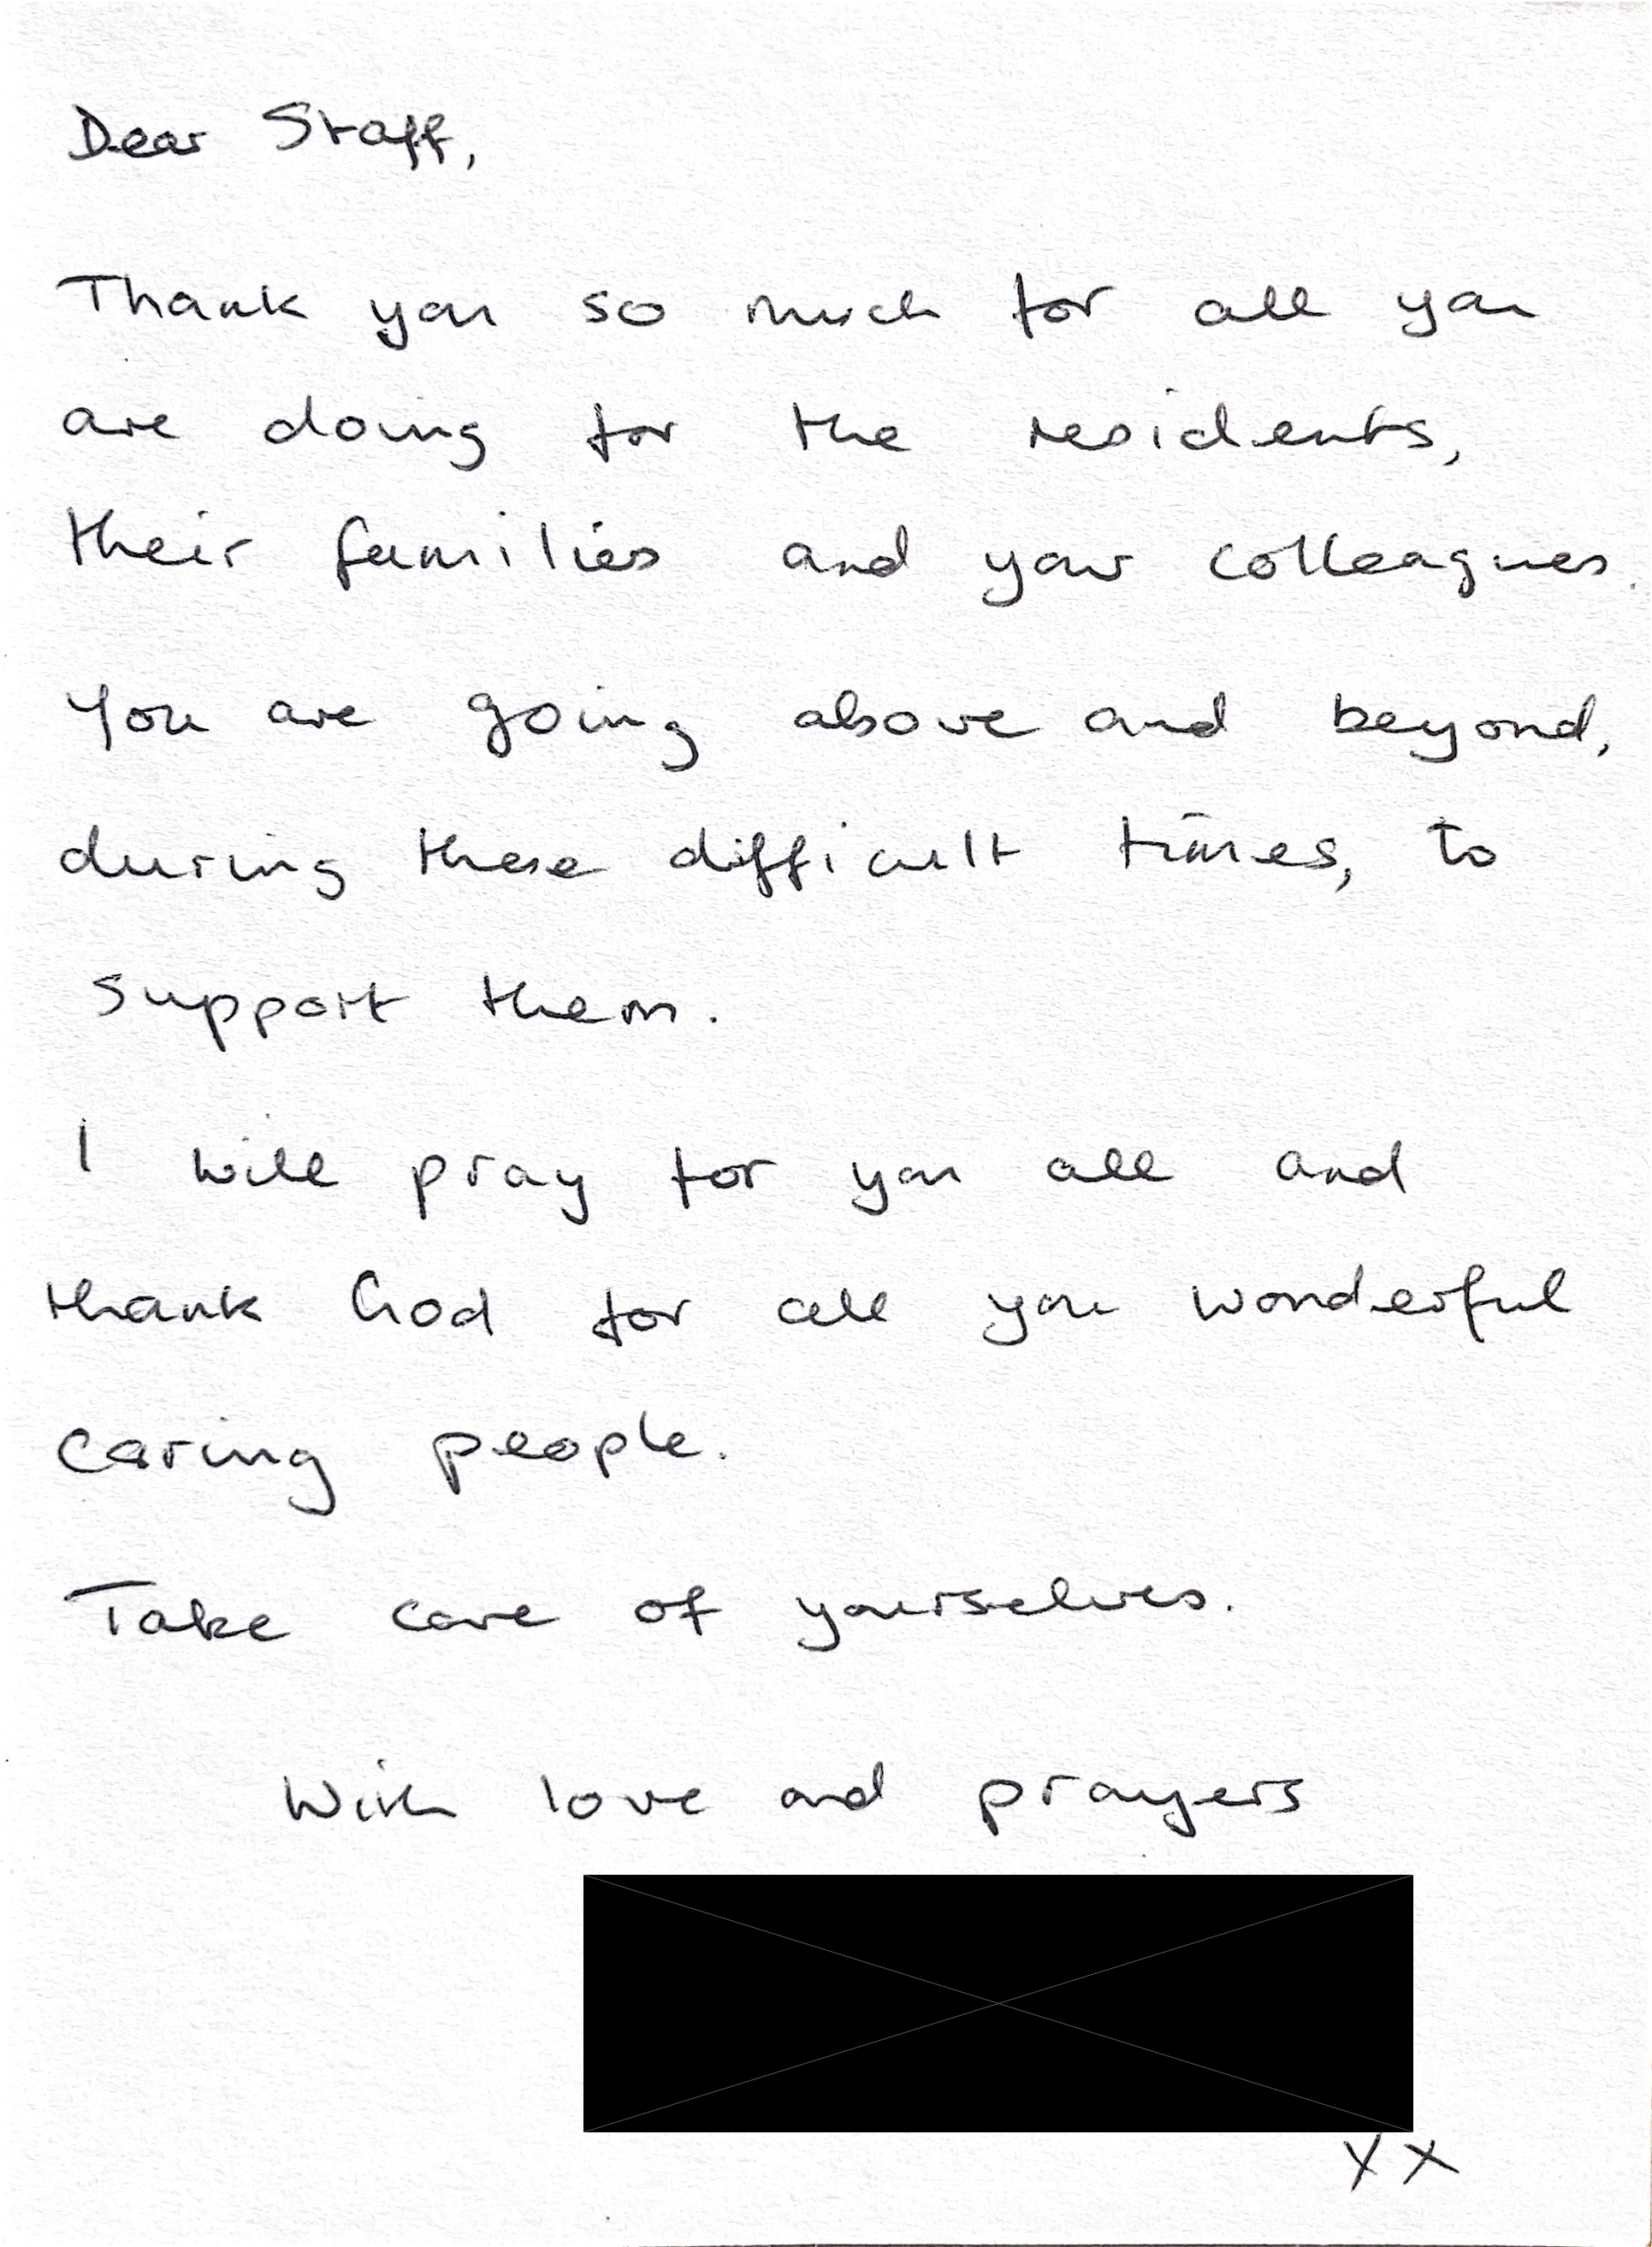 Dear Staff,
Thank you so much for all you
are doing for the residents,
their families and your colleagues.
You are going above and beyond,
during these difficult times, to
support them.
I will pray for you all and
thank God for all you wonderful
caring people.
Take care of yourselves.
With love and prayers
xx